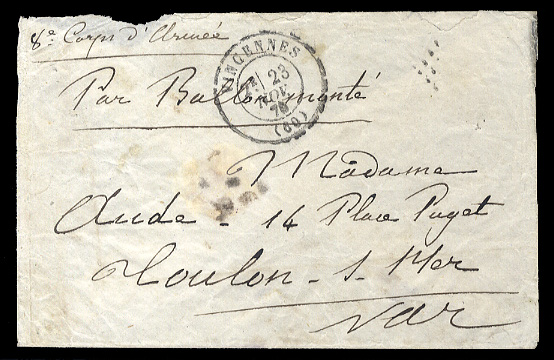 8e Corps d'Armée
VINCENNES
23
NOV
70
(60)
Par Ballon monté
Madame
Aude - 14 Place Puget
Toulon - s - Mer
Var